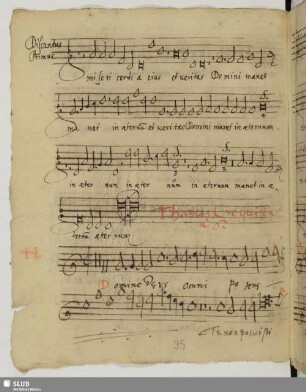 Discantus
Primus
miseri cordi a eius et veritas Domini manet
ma net in æternum et veritas Domini manet in æternum
in æter num in æter num in æternum manet in æ
ternum æternum
Thomas Crequilen
Domine Deus omni po tens
95
SLUB
Wir führen Wissen.